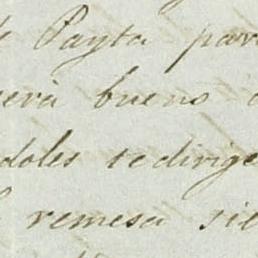 Payta par
será bueno
doles te dirige
remesa sie